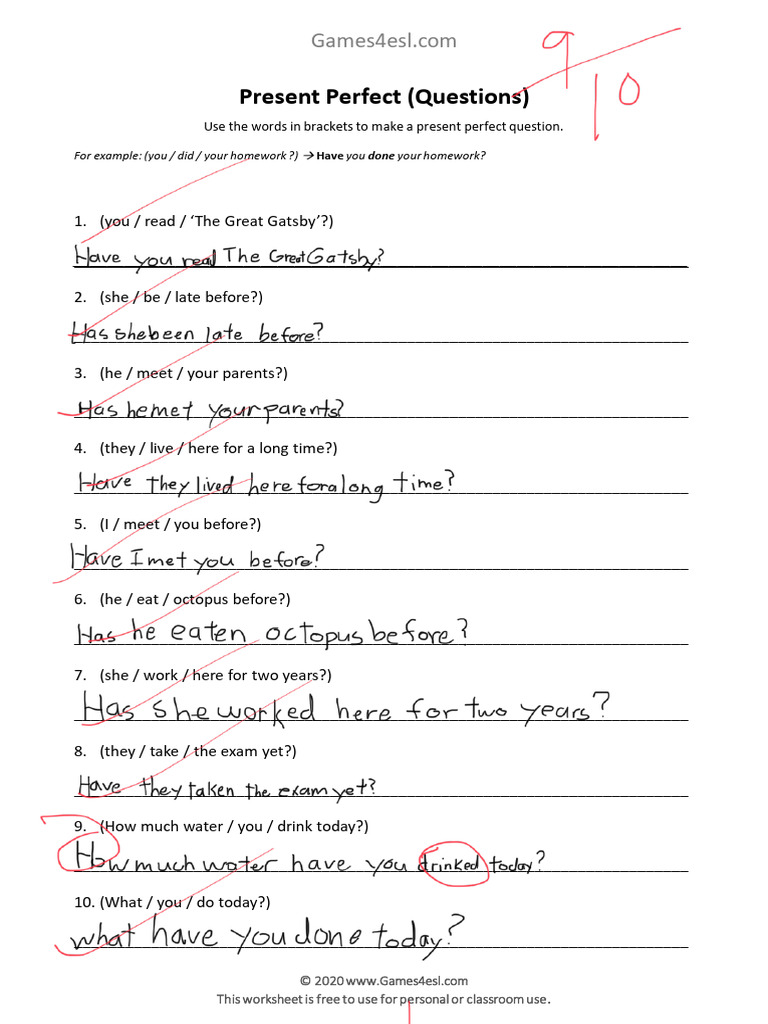 Games4esl.com
9/10
Present Perfect (Questions)
Use the words in brackets to make a present perfect question.
For example: (you / did / your homework ?) → Have you done your homework?
1. (you / read / ‘The Great Gatsby’?)
Have you read The Great Gatsby?
2. (she / be / late before?)
Has she been late before?
3. (he / meet / your parents?)
Has he met your parents?
4. (they / live / here for a long time?)
Have they lived here for a long time?
5. (I / meet / you before?)
Have I met you before?
6. (he / eat / octopus before?)
Has he eaten octopus before?
7. (she / work / here for two years?)
Has she worked here for two years?
8. (they / take / the exam yet?)
Have they taken the exam yet?
9. (How much water / you / drink today?)
How much water have you drinked today?
10. (What / you / do today?)
what have you done today?
© 2020 www.Games4esl.com
This worksheet is free to use for personal or classroom use.